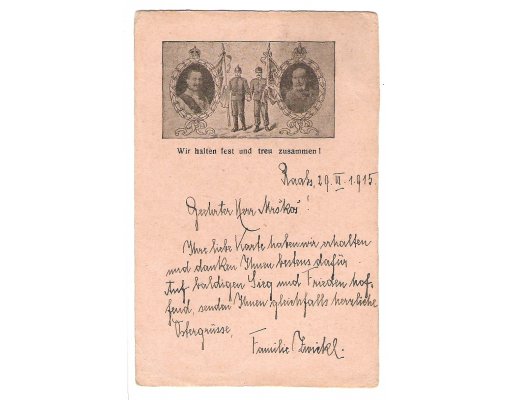 Wir halten fest und treu zusammen!
Raabs, 29. VI. 1915.
Geehrter Herr Mrškoš!
Ihre liebe Karte haben wir erhalten
und danken Ihnen bestens dafür
Auf baldigen Sieg und Frieden hof-
fend, senden Ihnen gleichfalls herzliche
Ostergrüsse,
Familie Zwickl.